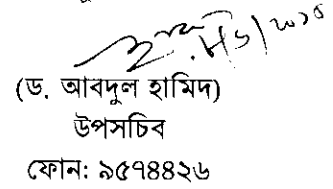 (ড. আবদুল হামিদ)
উপসচিব
ফোন: ৯৫৭৪৪২৬